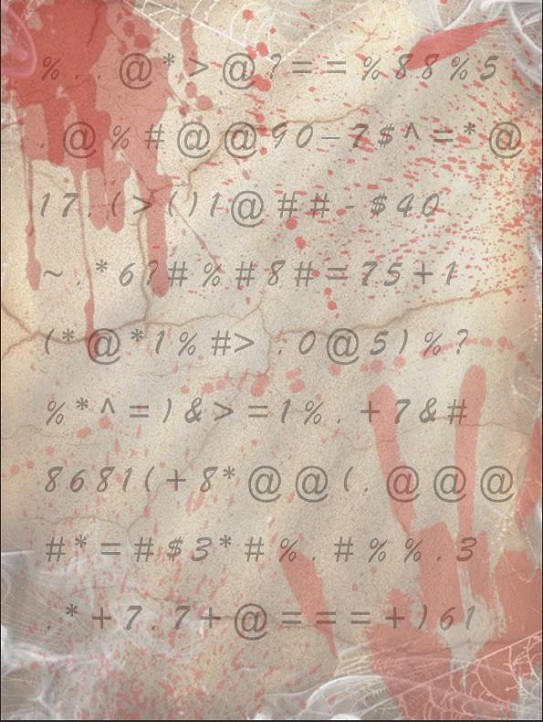 % . . @ * > @ ? = = % 8 8 % 5
. @ % # @ @ 9 0 – 7 $ ^ = * @
1 7 . ( > ( ) 1 @ # # - $ 4 0
~ . * 6 ? # % # 8 # = 7 5 + 1
( * @ * 1 % # > . : 0 @ 5 ) % ?
% * ^ = ) & > = 1 % . + 7 & #
8 6 8 1 ( + 8 * @ @ ( . @ @ @
# * = # $ 3 * # % . # % % . 3
. * + 7 . 7 + @ = = = + ) 6 1